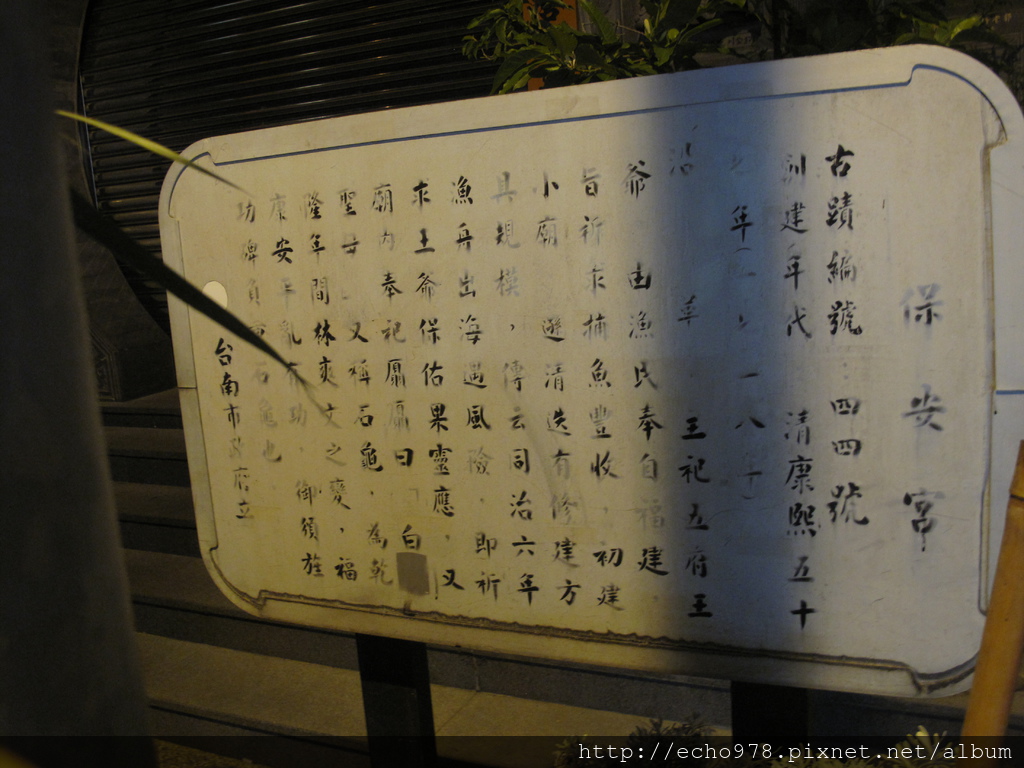 保安宮
古蹟編號:四四號
創建年代 清康熙五十
年(一七一八年)
沿革 主祀五府王
爺 由漁民奉自福建
旨祈求捕魚豐收,初建
小廟 遜清迭有修建方
具規模,傳云同治六年
漁舟出海遇風險,即祈
求王爺保佑果靈應,又
廟內奉祀匾曰「白
聖母 又稱石龜,為乾
隆年間林爽文之變,福
康安平亂有功,御頒旌
功碑負 石龜也
台南市政府立
http://echo978.pixnet.net/album